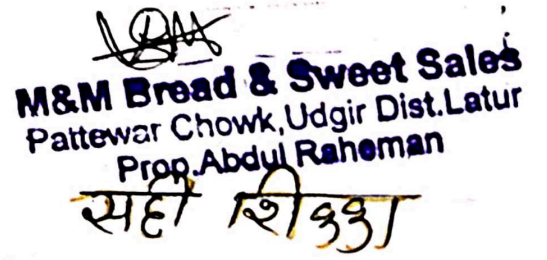 M&M Bread & Sweet Sales
Pattewar Chowk,Udgir Dist.Latur
Prop.Abdul Raheman
सही शिक्का